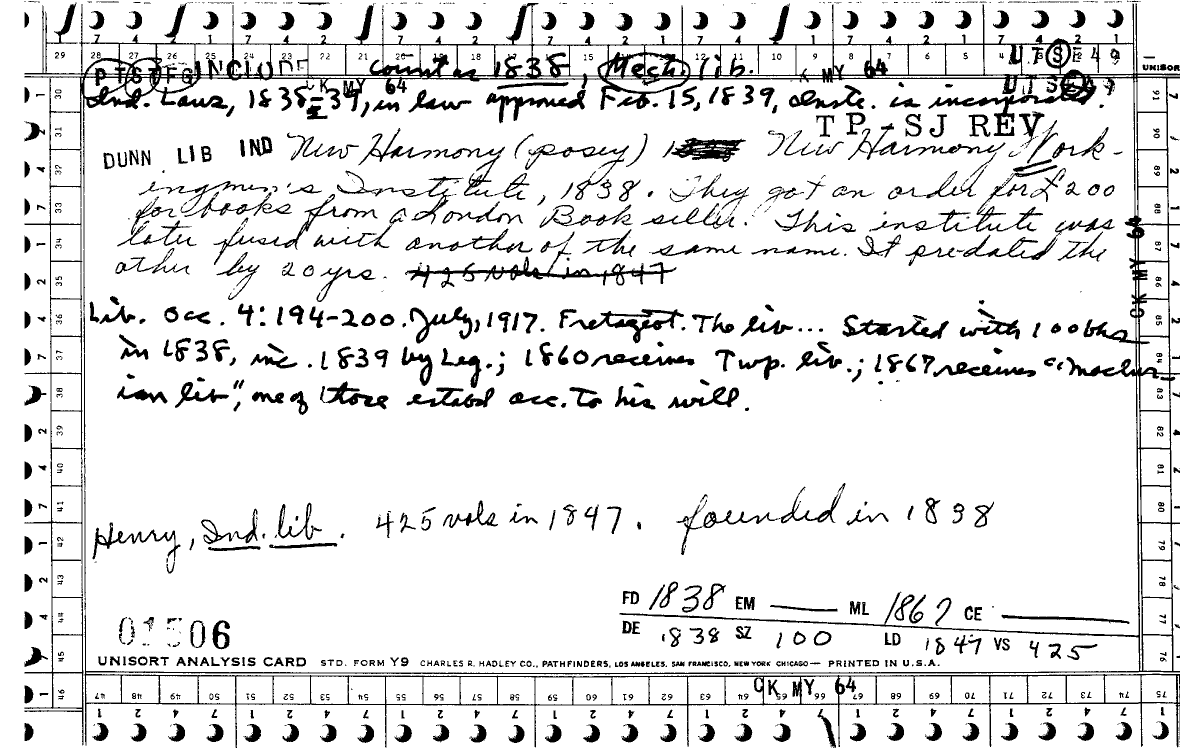 7 4 2 1 7 4 2 1 7 4 2 1 7 4 2 1 7 4 2 1 7 4 2 1 7 4 2 1
29 28 27 26 25 24 23 22 21 20 19 18 17 16 15 14 13 12 11 10 9 8 7 6 5 4 3 2 1
UTSE49
UNISOR
PTSTFG INCLUDE count as 1838, Mech. lib. CK MY 64
CK MY 64
Ind. Laws, 1838-39, in law approved Feb. 15, 1839, Inste. is incorporated.
TP-SJ REV
DUNN LIB IND New Harmony (posey) New Harmony Work-
ingmen's Institute, 1838. They got an order for £200
for books from a London Book seller. This institute was
later fused with another of the same name. It predated the
other by 20 yrs. 425 vols in 1847
Lib. Occ. 4:194-200. July, 1917. Fretageot. The lib... Started with 100 bks
in 1838, inc. 1839 by Leg.; 1860 receives Twp. lib.; 1867 receives "Maclur-
ian lib", one of those estabd acc. to his will.
Henry, Ind. lib. 425 vols in 1847. founded in 1838
FD 1838 EM — ML 1867 CE —
DE 1838 SZ 100 LD 1847 VS 425
01506
UNISORT ANALYSIS CARD STD. FORM Y9 CHARLES R. HADLEY CO., PATHFINDERS, LOS ANGELES, SAN FRANCISCO, NEW YORK CHICAGO — PRINTED IN U.S.A.
CK MY 64
46 47 48 49 50 51 52 53 54 55 56 57 58 59 60 61 62 63 64 65 66 67 68 69 70 71 72 73 74 75
1 2 4 7 1 2 4 7 1 2 4 7 1 2 4 7 1 2 4 7 1 2 4 7 1 2 4 7
30 31 32 33 34 35 36 37 38 39 40 41 42 43 44 45
91 90 89 88 87 86 85 84 83 82 81 80 79 78 77 76
CK MY 64